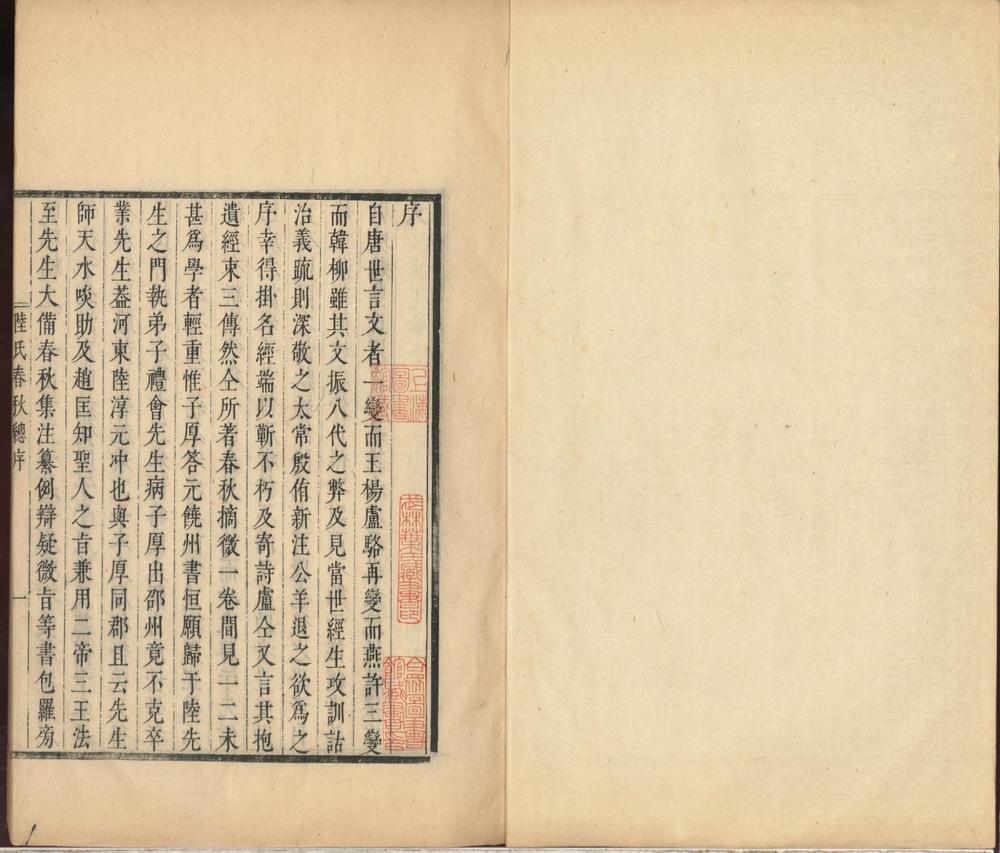 序
自唐世言文者一變而王楊盧駱再變而燕許三變
而韓柳雖其文振八代之弊及見當世經生攻訓詁
治義疏則深敬之太常殷侑新注公羊退之欲爲之
序幸得掛名經端以蘄不朽及寄詩盧仝又言其抱
遺經束三傳然仝所著春秋摘微一卷間見一二未
甚爲學者輕重惟子厚答元饒州書恒願歸于陸先
生之門執弟子禮會先生病子厚出邵州竟不克卒
業先生葢河東陸淳元冲也與子厚同郡且云先生
師天水啖助及趙匡知聖人之㫖兼用二帝三王法
至先生大備春秋集注纂例辯疑微㫖等書包羅旁
陸氏春秋總序
一